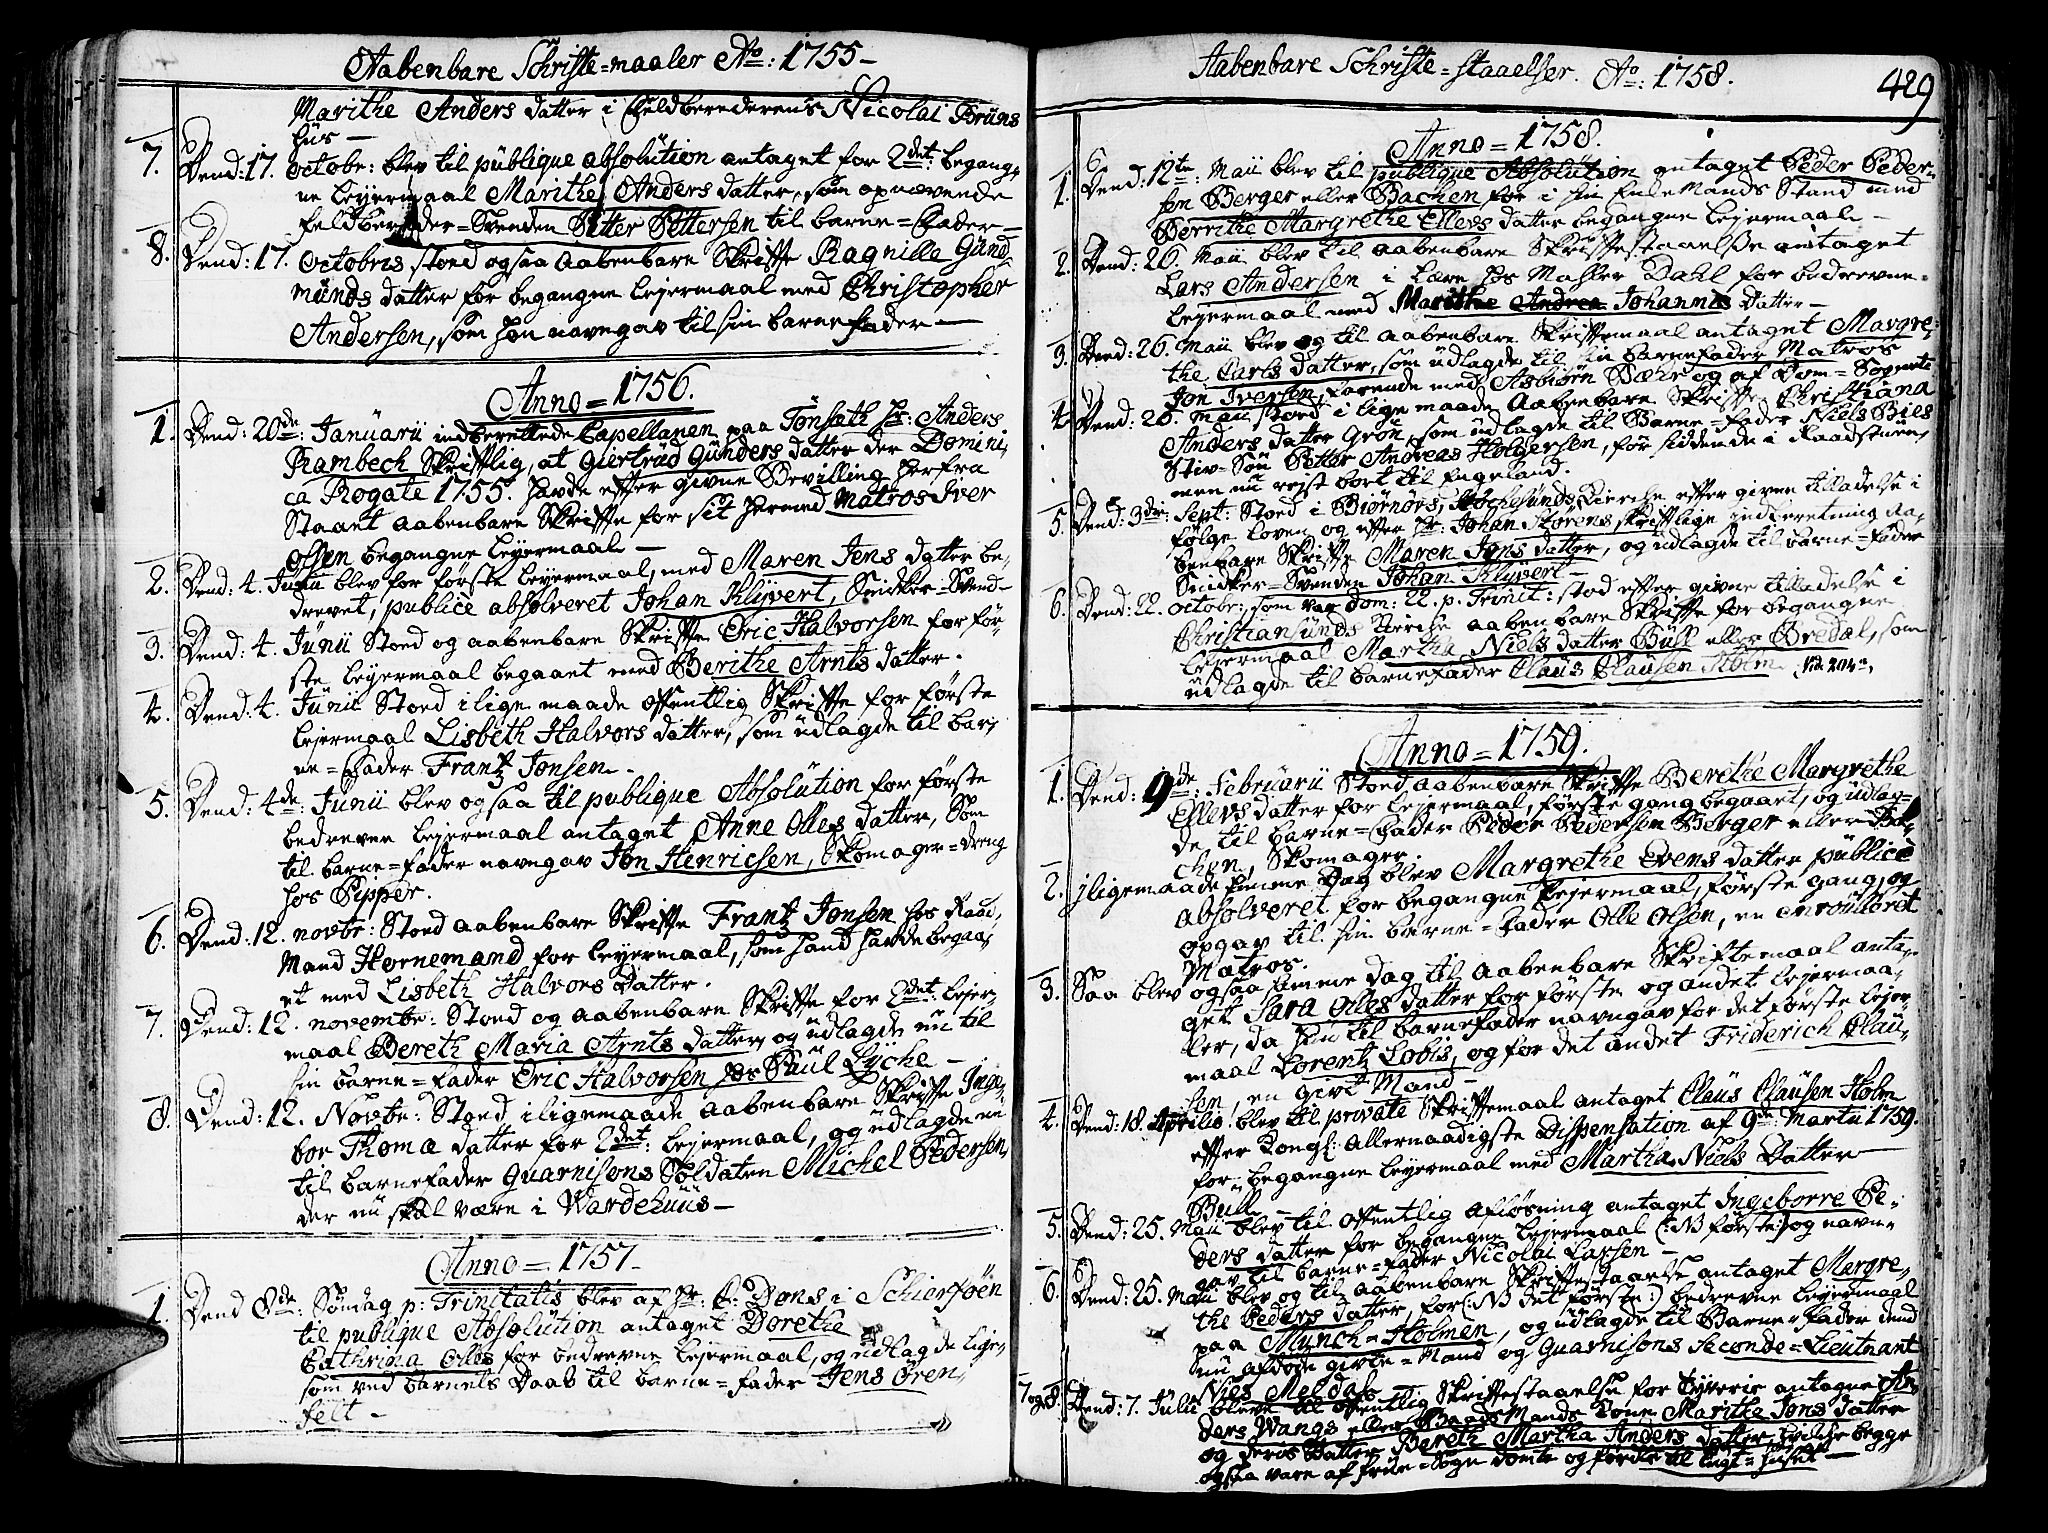 Aabenbare Schrifte=maaler Ao: 1755-
Marithe Anders datter i Feldberederens Nicolai Brüns
hüs-
7. Dend: 17. octobr: blev til püblique absolütion antaget for 2det: begang-
ne leyermaal Marithe Anders datter, som opnævnde
feldbereder=Svenden Petter Pettersen til barne=Fader-
8. Dend: 17. Octobris stoed ogsaa Aabenbare Skriffte Ragnille Günd-
münds datter for begangne lejermaal med Christopher
Andersen, som hon navngav til sin barnefader-
Anno=1756.
1. Dend: 20de: Januarii indberettede Capellanen paa Tönseth Hr: Anders
Rambech Skrifftlig, at Giertrüd Günders datter der Domini-
ca Rogate 1755. havde effter givne Bevilling herfra
Staaet aabenbare Skriffte for sit hermed Matros Iver
Olsen begangne Leyermaal-
2. Dend: 4. Junii blev for förste leyermaal, med Maren Jens datter be-
drevet, publice absolveret Johan Klÿvert, Snidker=Svend-
3. Dend: 4. Jünii Stoed og aabenbare Skriffte Eric Halvorsen for för-
ste leyermaal begaaet med Berithe Arnts datter.
4. Dend: 4. Jünii Stoed i lige maade offentlig Skriffte for förste
lejermaal Lisbeth Halvors datter, som üdlagde til bar-
ne=Fader Frantz Jonsen.
5. Dend: 4de: Junii blev ogsaa til publique Absolution for förste
bedrevne lejermaal antaget Anne Olles datter, Som
til barne=fader navngav Jon Henricsen, Skomager=dreng
hos Pipper.
6. Dend: 12. novbr: Stoed aabenbare Skriffte Frantz Jonsen hos Raad-
Mand Hornemand for leyermaal, som hand havde begaa-
et med Lisbeth Halvors datter.
7. Dend: 12. novembr: Stoed og aabenbare Skriffte for 2det: lejer-
maal Bereth Maria Arnts datter, og üdlagde nu til
sin barne=fader Eric Halvorsen hos Paül Lÿche-
8. Dend: 12. Novbr: Stoed i ligemaade aabenbare Skriffte Inge-
bor Thomæ datter for 2det: lejermaal, og üdlagde nu
til barnefader Guarnisons Soldaten Michel Pedersen,
der nü skal være i Wardehuus-
Anno=1757.
1. Dend 8de: Söndag p: Trinitatis blev af Hr. C: Dons i Schierföen
til publique Absolution antaget Dorethe
Cathrina Olles for bedrevne lejermaal, og üdlagde lige-
som ved barnets Daab til barne=fader Jens Ören-
felt-
Aabenbare Schrifte=staaelser. Ao: 1758.
429
Anno=1758.
1. Dend: 12te: Maii blev til publique Absolütion antaget Peder Peder-
sen Berger eller Bachen for i sin EnkeMands Stand med
Berrithe Margrethe Ellevs datter begangne lejermaal-
2. Dend: 26. Maii blev til aabenbare Skrifftestaaelse antaget
Lars Andersen i Lære hos Mahler Dahl for bedrevne-
lejermaal med Marithe Andrea Johannes datter-
3. Dend: 26. Maii blev og til aabenbare Skrifftemaal antaget Margre-
the Carls datter, som üdlagde til sin barnefader Matros
Jon Iversen, farende med Asbiörn Bæhr og af Dom=Sognet
4. Dend: 26. Maii stoed i lige maade Aabenbare Skriffte Christiana
Anders datter Grön, som üdlagde til Barne=fader Niels Bies
Stiv=Sön Petter Andreas Holgersen, för siddende i Raadstuen,
men nu reist bort til Engeland.
5. Dend: 3de: Sept: Stoed i Biörnörs, Hochesünds Kierche effter givne tilladelse i
fölge loven og effter Hr: Johan Störens skrifftlige indberetning Aa-
benbare Skriffte Maren Jens datter, og üdlagde til barne=fader
Snidker=Svenden Johan Klÿvert-
6. Dend: 22. octobr: som var dom: 22. p. Trinit: stod effter givne tilladelse i
Christiansünds Kirche aabenbare Skriffte for begangne
lejermaal Martha Niels datter Büll eller Bredal, som
udlagde til barnefader Claus Clausen Holm.
Anno=1759.
1. Dend: 9de: Februarii Stoed aabenbare Skriffte Berethe Margrethe
Ellevs datter for lejermaal, förste gang begaaet, og üdlag-
de til barne=Fader Peder Pedersen Berger eller Ba-
chen, Skomager.
2. jligemaade samme Dag blev Margrethe Evens datter publicè
absolveret for begangne lejermaal, förste gang, og
opgav til sin barne=fader Olle Olsen, en enroulleret
Matros.
3. Saa blev ogsaa samme dag til aabenbare Skriftemaal anta-
get Sara Olles datter for förste og andet lejermaa-
ler, da hün til barnefader navngav for det förste lejer-
maal Lorentz Lobis, og for det andet Friderich Clau-
sen, en givt Mand-
4. Dend: 18. Aprilis blev til private Skrifftemaal antaget Claüs Claüsen Holm
effter Kongl: Allernaadigste Dispensation af 9de Martii 1759.
for begangne leyermaal med Martha Niels Datter
Bull-
5. Dend: 25. Maii blev til offentlig aflösning antaget Ingeborre Pe-
ders datter for begangne lejermaal (:NB förste:) og navn-
gav til barne=fader Nicolai Larsen-
6. Dend: 25. Maii blev og til aabenbare Skrifftestaaelse antaget Margre-
the Peders datter, for (:NB det förste:) bedrevne leyermaal
paa Münch=Holmen, og üdlagde til Barne=fader dend
nu afdöde givte=Mand og Guarnisons Seconde=Lieutnant
Nies Meldal-
7 og 8. Dend: 7. Julii bleve til offentlig Skrifftestaaelse for tyverie antagne An-
ders Wangs eller BaadsMands Kone Marithe Jons datter
og deris Datter Bereth Martha Anders datter, hvilke begge
ogsaa vare af Frue=Sogn dömte og förte til tugt=huset-